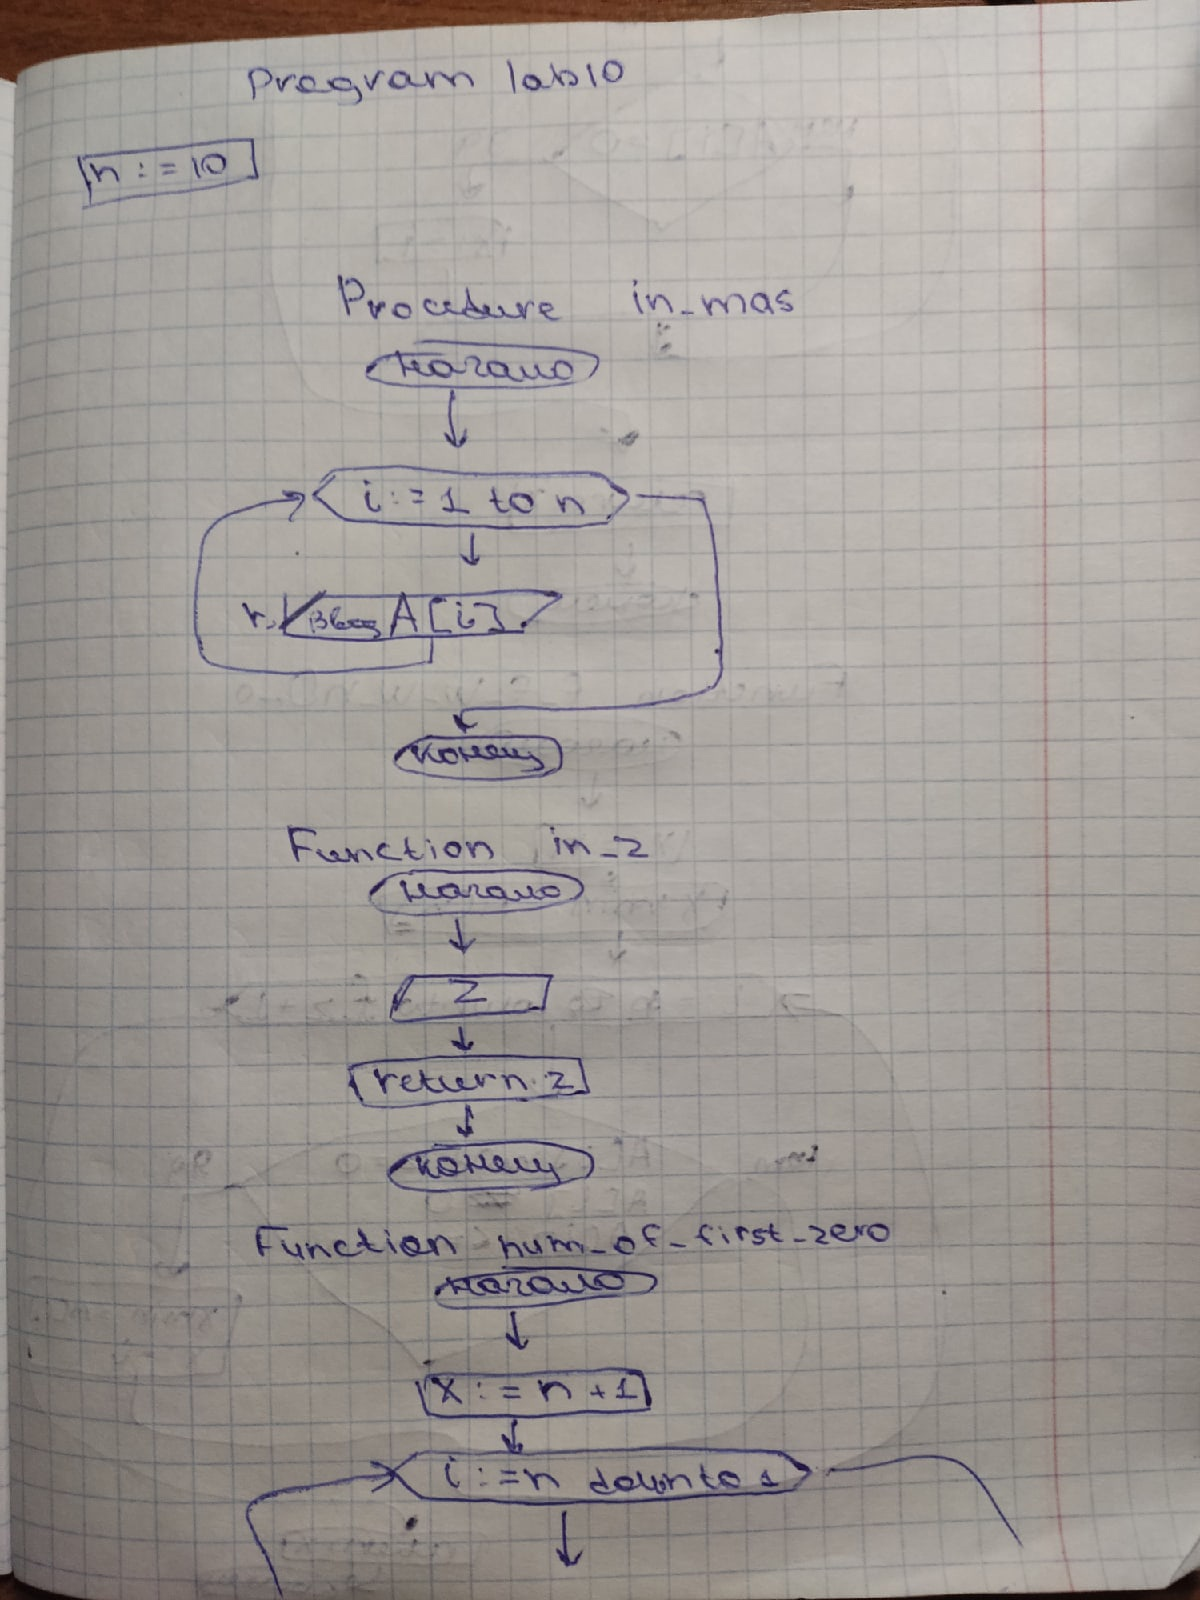 Program lab10
n := 10
Procedure in_mas
начало
i := 1 to n
Ввод A[i]
конец
Function in_z
начало
z
return z
конец
Function num_of_first_zero
начало
x := n+1
i := n downto 1